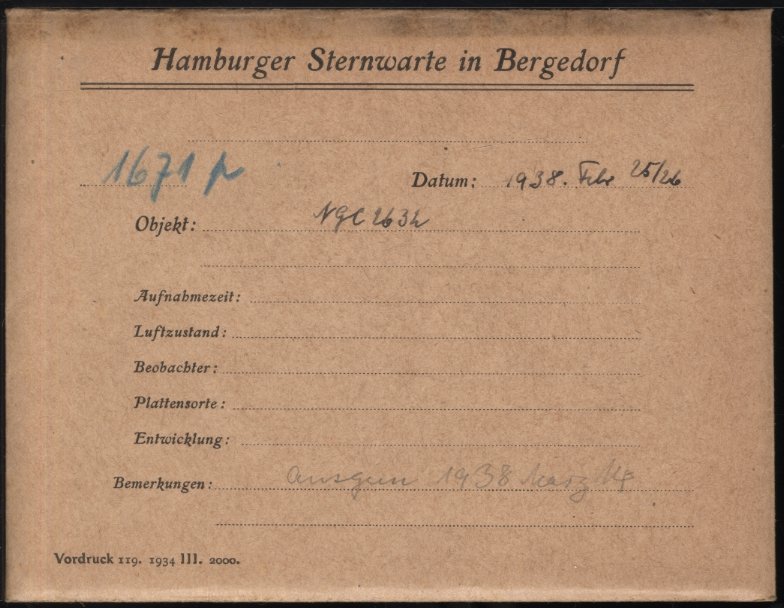 Hamburger Sternwarte in Bergedorf
1671 p
Datum: 1938. Febr 25/26
Objekt: NGC 2632
Aufnahmezeit:
Luftzustand:
Beobachter:
Plattensorte:
Entwicklung:
Bemerkungen: 1938 März
Vordruck 119. 1934 III. 2000.